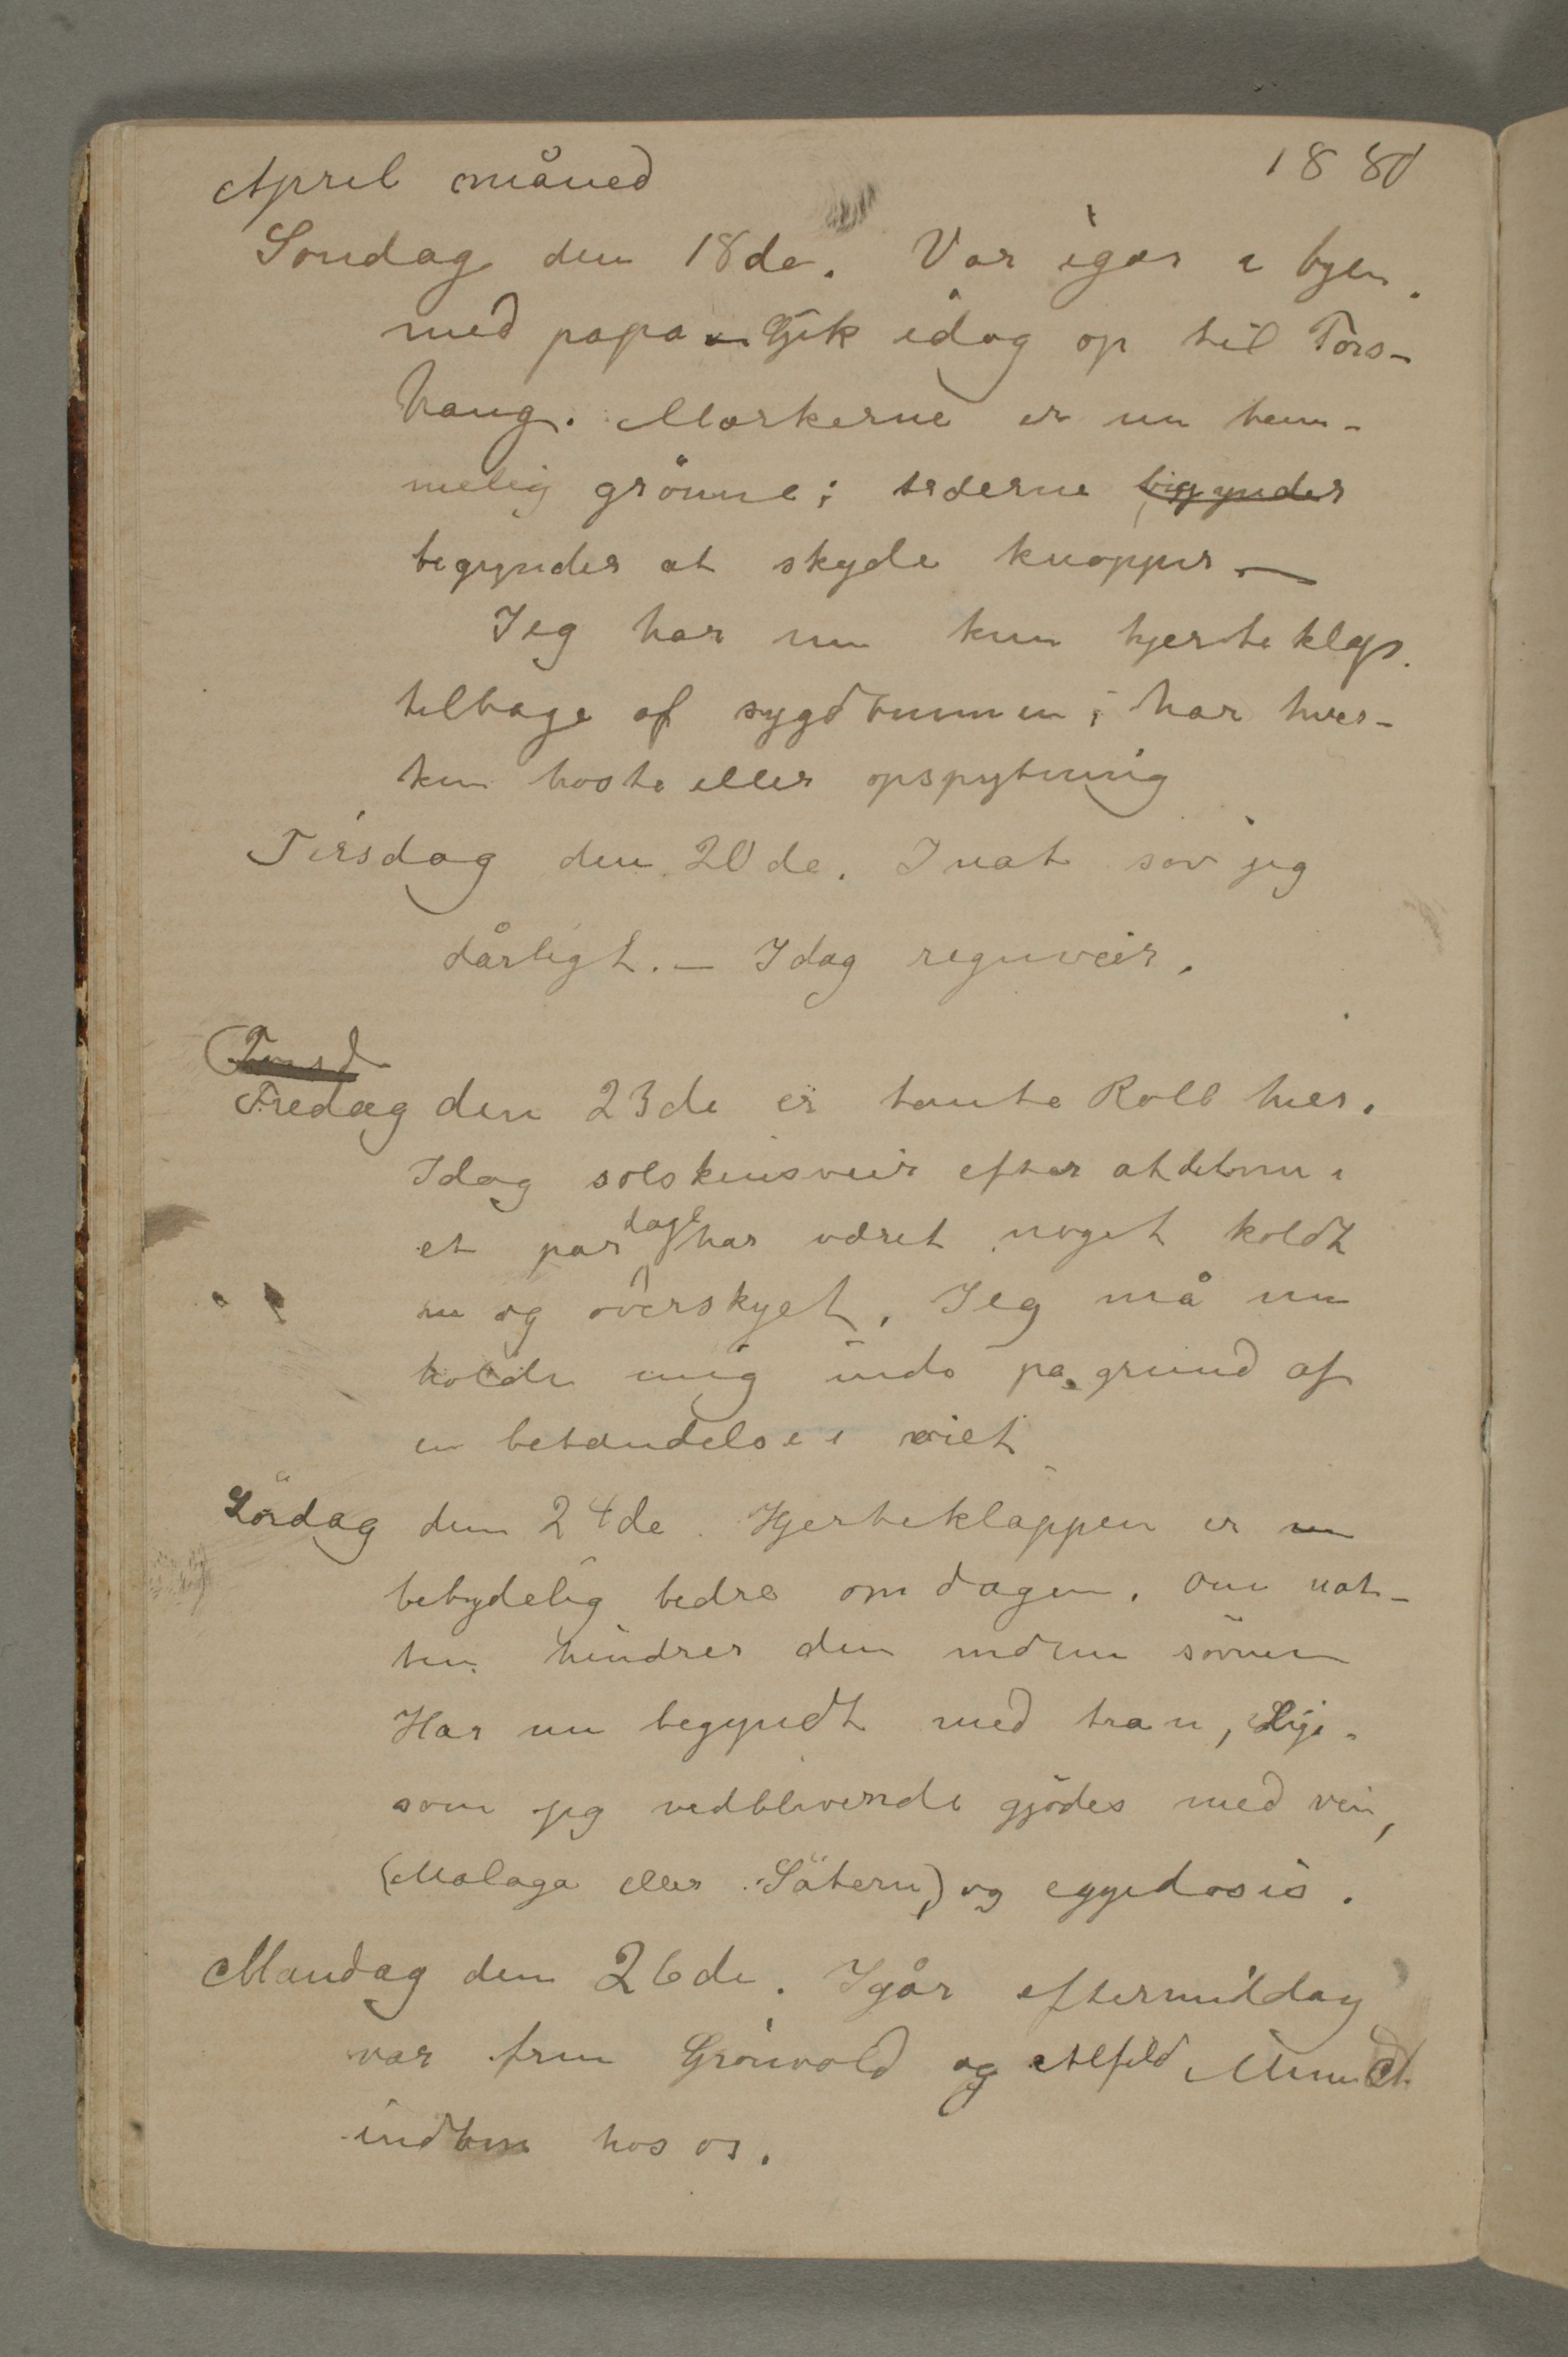 April måned 1880
Söndag den 18de. Var igår i byen
med papa. Gik idag op til Tors-
haug. Markerne er nu tem-
melig grönne; træerne begynder
begynder at skyde knopper. —
Jeg har nu kun hjertekløp.
tilbage af sygdommen; har hver-
ken hoste eller opspytning
Tirsdag den 20de. Inat sov jeg
dårligt. — Idag regnveir.
Torsd
Fredag den 23de er tante Roll her.
Idag solskinsveir efter at det nu i
et par dage har været noget koldt
og overskyet. Jeg må nu
holde mig inde på grund af
en betændelse i øiet
Lördag den 24de. Hjerteklappen er
betydelig bedre om dagen. Om nat-
ten hindrer den endnu sövnen
Har nu begyndt med tran, Lige-
som jeg vedblivende gjödes med vin,
(Malaga eller Sötern) og eggedosis.
Mandag den 26de. Igår eftermiddag
var fru Grönvold og Alfild Munch
indom hos os.